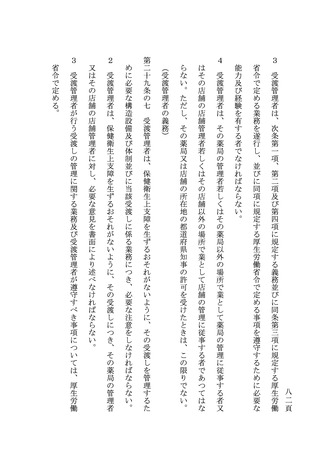 八二頁
3　受渡管理者は、次条第一項、第二項及び第四項に規定する義務並びに同条第三項に規定する厚生労働
省令で定める業務を遂行し、並びに同項に規定する厚生労働省令で定める事項を遵守するために必要な
能力及び経験を有する者でなければならない。
4　受渡管理者は、その薬局の管理者若しくはその薬局以外の場所で業として薬局の管理に従事する者又
はその店舗の店舗管理者若しくはその店舗以外の場所で業として店舗の管理に従事する者であつてはな
らない。ただし、その薬局又は店舗の所在地の都道府県知事の許可を受けたときは、この限りでない。
（受渡管理者の義務）
第二十九条の七　受渡管理者は、保健衛生上支障を生ずるおそれがないように、その受渡しを管理するた
めに必要な構造設備及び体制並びに当該受渡しに係る業務につき、必要な注意をしなければならない。
2　受渡管理者は、保健衛生上支障を生ずるおそれがないように、その受渡しにつき、その薬局の管理者
又はその店舗の店舗管理者に対し、必要な意見を書面により述べなければならない。
3　受渡管理者が行う受渡しの管理に関する業務及び受渡管理者が遵守すべき事項については、厚生労働
省令で定める。